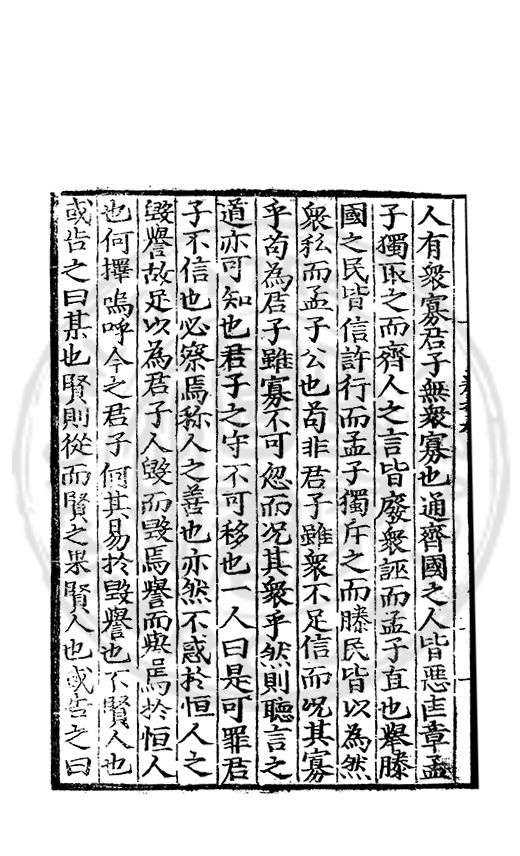 人有衆寡君子無衆寡也通齊國之人皆惡匡章孟
子獨取之而齊人之言皆廢衆誣而孟子直也舉滕
國之民皆信許行而孟子獨斥之而滕民皆以為然
衆私而孟子公也苟非君子雖衆不足信而况其寡
乎苟為君子雖寡不可忽而况其衆乎然則聽言之
道亦可知也君子之守不可移也一人曰是可罪君
子不信也必察焉称人之善也亦然不惑於恒人之
毀譽故足以為君子人毀而毀焉譽而譽焉於恒人
也何擇嗚呼今之君子何其易於毀譽也不賢人也
或告之曰某也賢則從而賢之果賢人也或告之曰